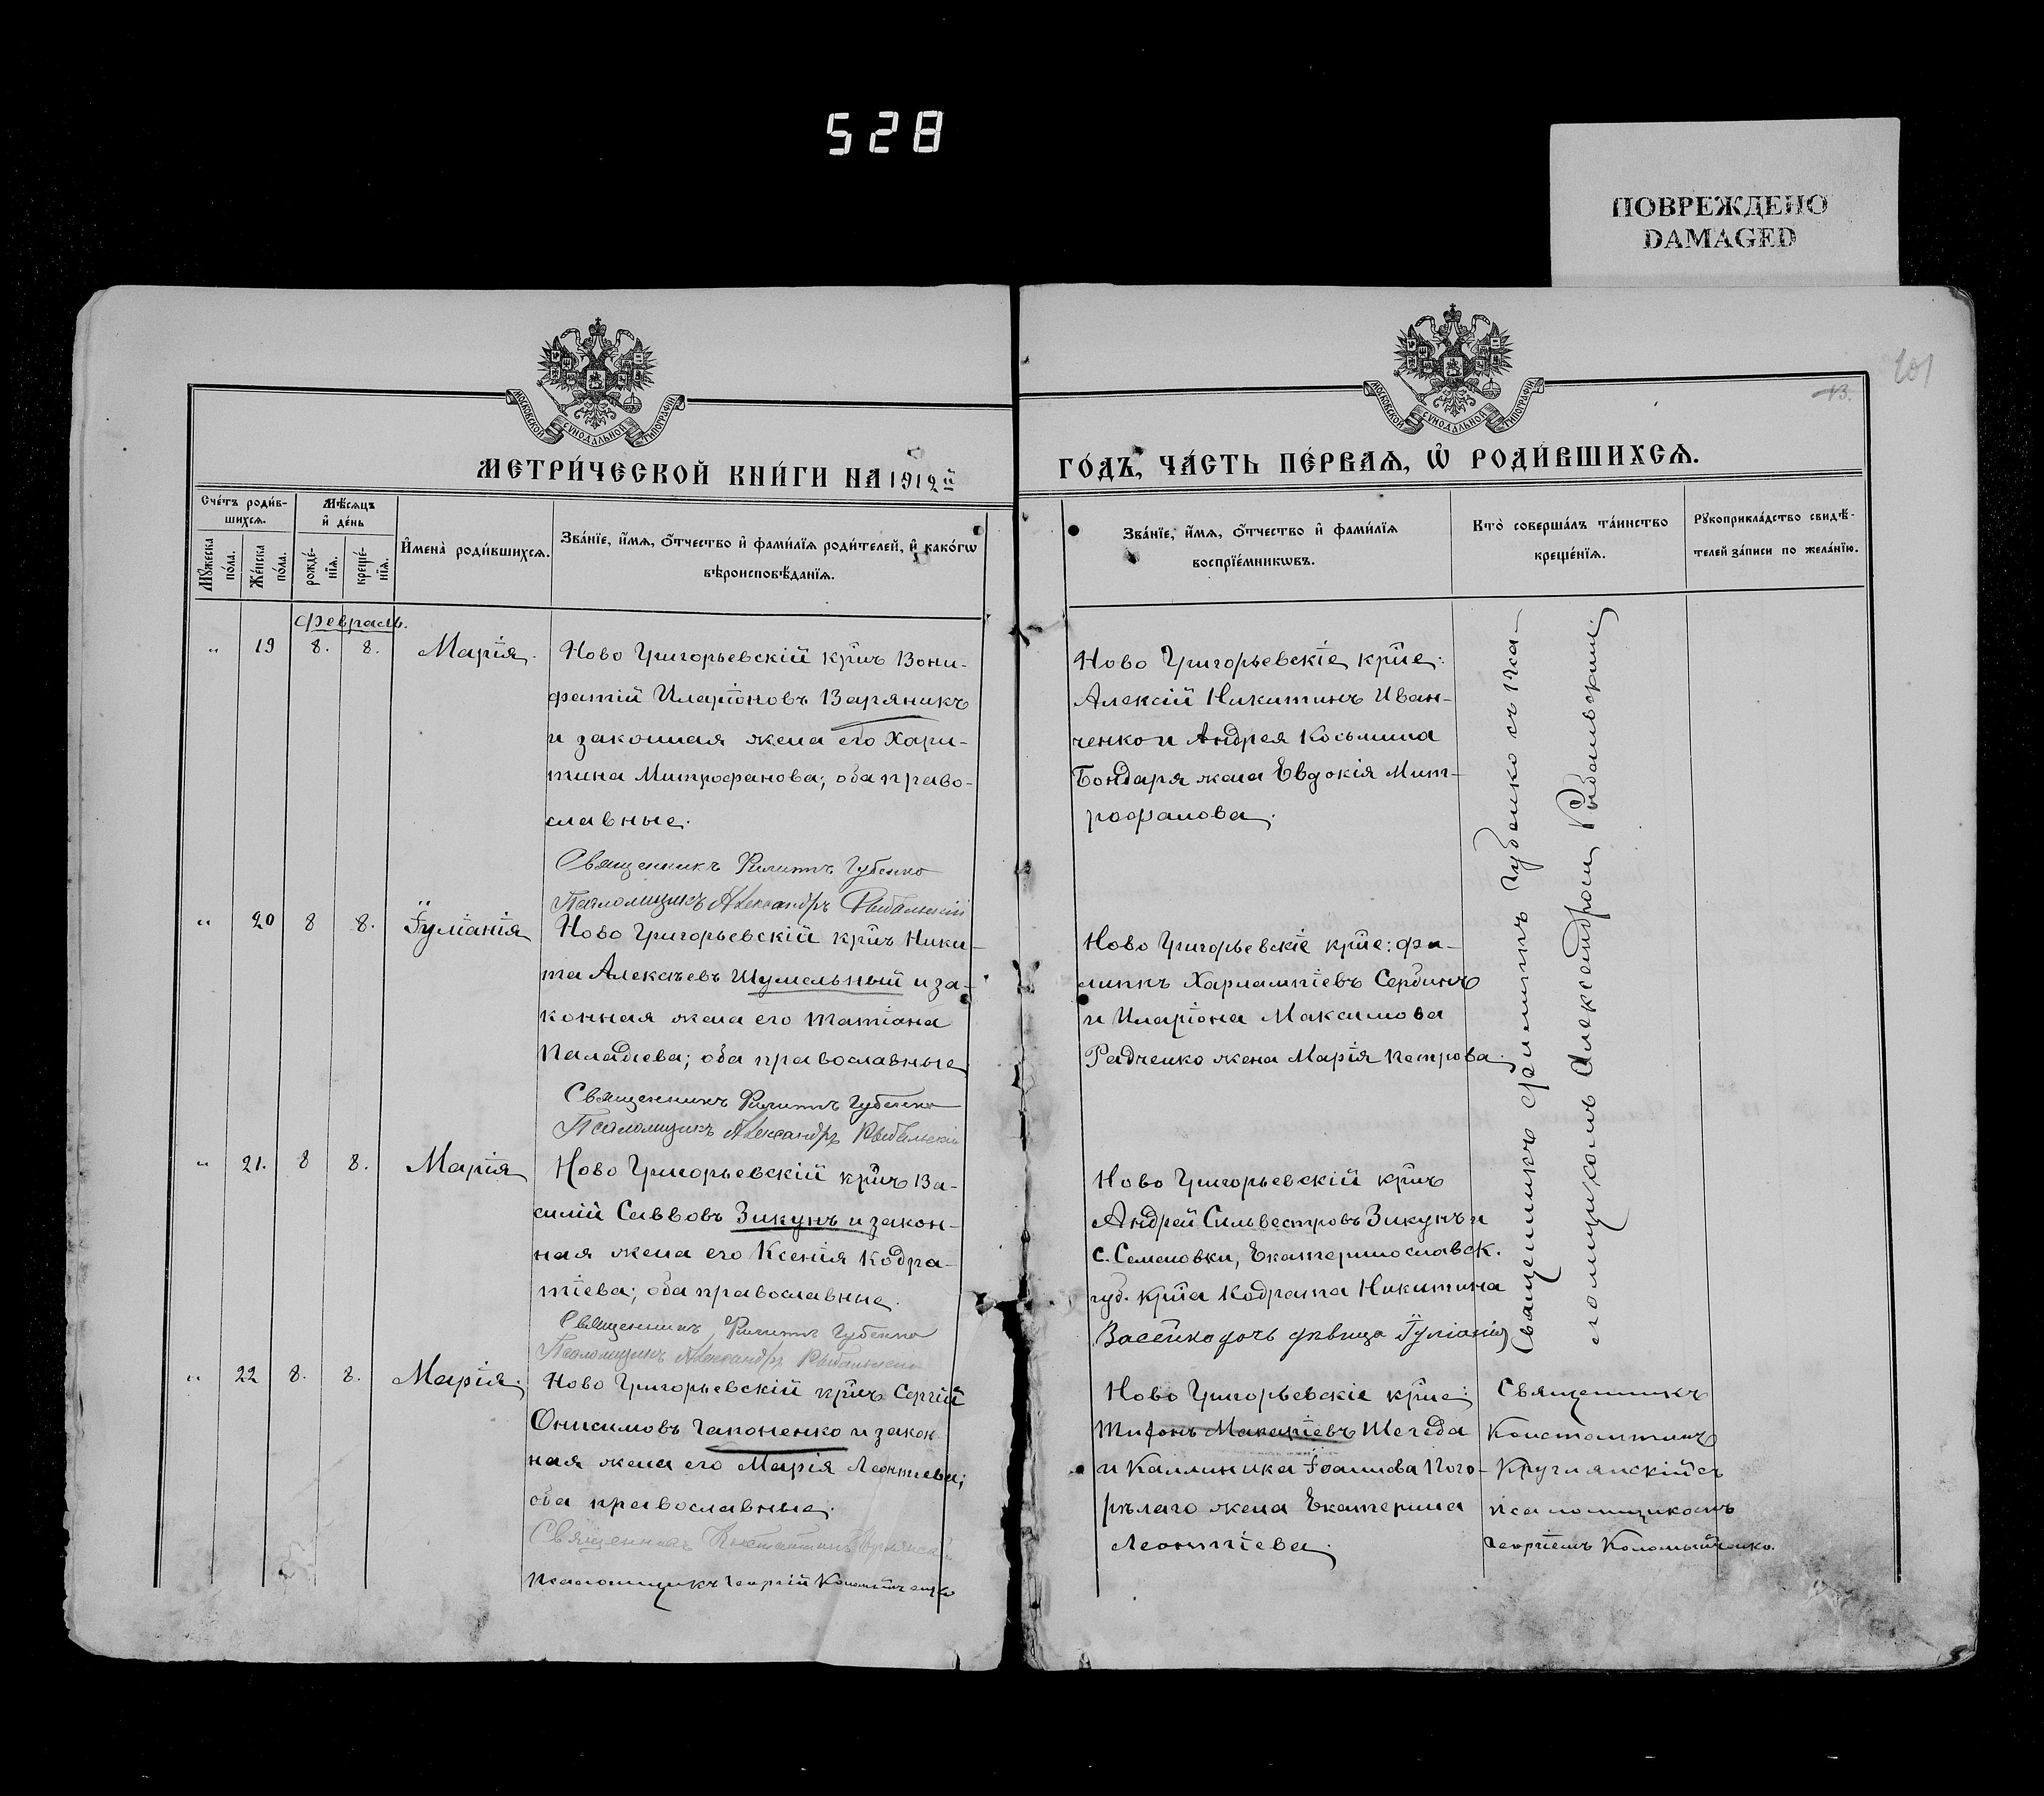 528
ПОВРЕЖДЕНО
DAMAGED
МОСКОВСКОЙ СУНОДАЛЬНОЙ ТИПОГРАФІИ
МОСКОВСКОЙ СУНОДАЛЬНОЙ ТИПОГРАФІИ
201
13.
МЕТРИ́ЧЕСКОЙ КНИ́ГИ НА 1912й
ГО́ДЪ, ЧА́СТЬ ПЕ́РВАѦ, Ѡ҆ РОДИ́ВШИХСѦ.
Сче́тъ роди́в-
шихсѧ.
Мꙋжеска
по́ла.
Же́нска
по́ла.
Мѣ́сѧцъ
и҆ де́нь
рожде́-
нїѧ.
креще́-
нїѧ.
И҆мена̀ роди́вшихсѧ.
Зва́нїе, и҆́мѧ, ѻ҆́тчество и҆ фами́лїѧ роди́телей, и҆ како́гѡ
вѣроисповѣ́данїѧ.
Зва́нїе, и҆́мѧ, ѻ҆́тчество и҆ фами́лїѧ
воспрїе́мникѡвъ.
Кто̀ соверша́лъ та́инство
креще́нїѧ.
Рꙋкоприкла́дство свидѣ́-
телей за́писи по жела́нїю.
Февраль.
" 19 8. 8. Марія.
Ново Григорьевскій кр̃нъ Вони-
фатій Иларіоновъ Варяникъ
и законная жена его Хари-
тина Митрофанова; оба право-
славные.
Священникъ Филиппъ Губенко
Псаломщикъ Александръ Рыбальскій
Ново Григорьевскіе кр̃не:
Алексій Никитинъ Иван-
ченко и Андрея Косьмина
Бондаря жена Евдокія Мит-
рофанова.
Священникъ Филиппъ Губенко съ пса-
ломщикомъ Александромъ Рыбальскимъ.
" 20 8 8. Іуліанія
Ново Григорьевскій кр̃нъ Ники-
та Алексѣевъ Шумельный и за-
конная жена его Татіана
Паладіева; оба православные
Священникъ Филиппъ Губенко
Псаломщикъ Александръ Рыбальскій
Ново Григорьевскіе кр̃не: Фи-
липпъ Харлампіевъ Сербинъ
и Иларіона Максимова
Радченко жена Марія Петрова.
" 21. 8 8. Марія
Ново Григорьевскій кр̃нъ Ва-
силій Саввовъ Зикунъ и закон-
ная жена его Ксенія Кодра-
тіева; оба православные.
Священникъ Филиппъ Губенко
Псаломщикъ Александръ Рыбальскій
Ново Григорьевскій кр̃нъ
Андрей Сильвестровъ Зикунъ и
с. Семеновки, Екатеринославск.
губ. кр̃на Кодрата Никитина
Васейко дочь дѣвица Іуліанія
" 22 8. 8. Марія.
Ново Григорьевскій кр̃нъ Сергій
Онисимовъ Гапоненко и закон-
ная жена его Марія Леонтіева;
оба православные.
Священникъ Константинъ Круглянскій
Псаломщикъ Георгій Коломійченко
Ново Григорьевскіе кр̃не:
Тифонъ Макаріевъ Шегеда
и Каллиника Іоаннова Пого-
рѣлаго жена Екатерина
Леонтіева.
Священникъ
Константинъ
Круглянскій съ
псаломщикомъ
Георгіемъ Коломійченко.